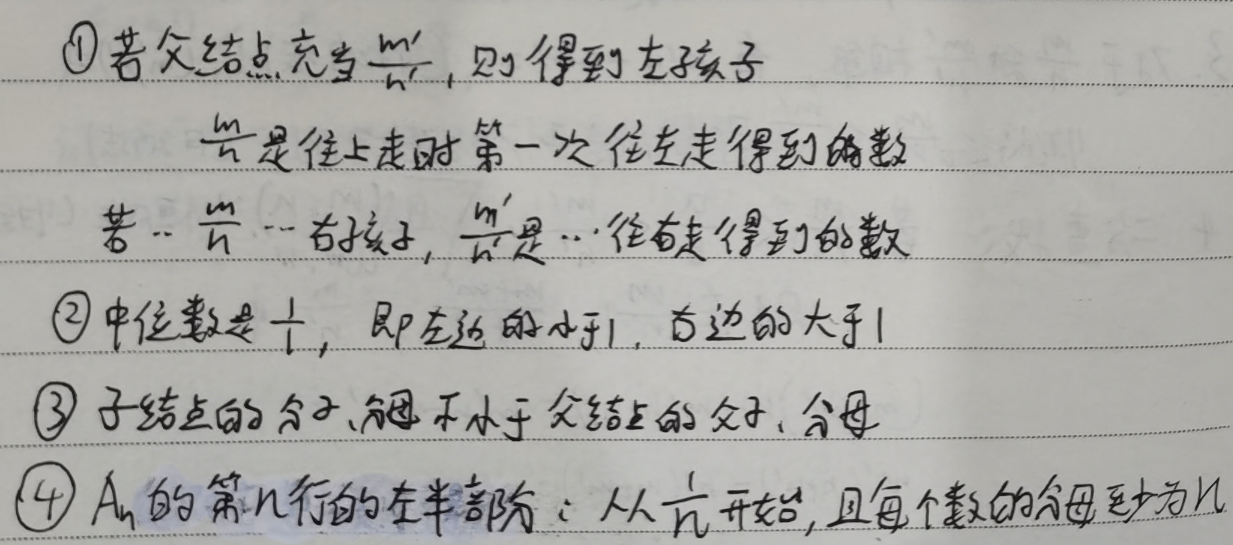 ①若父结点充当m'/n',则得到左孩子
m/n是往上走时第一次往左走得到的数
若‥m/n…右孩子,m'/n'是…往右走得到的数
②中位数是1/1,即左边的小于1,右边的大于1
③子结点的分子、分母不小于父结点的分子、分母
④An的第n行的左半部分:从1/n开始,且每个数的分母至少为n